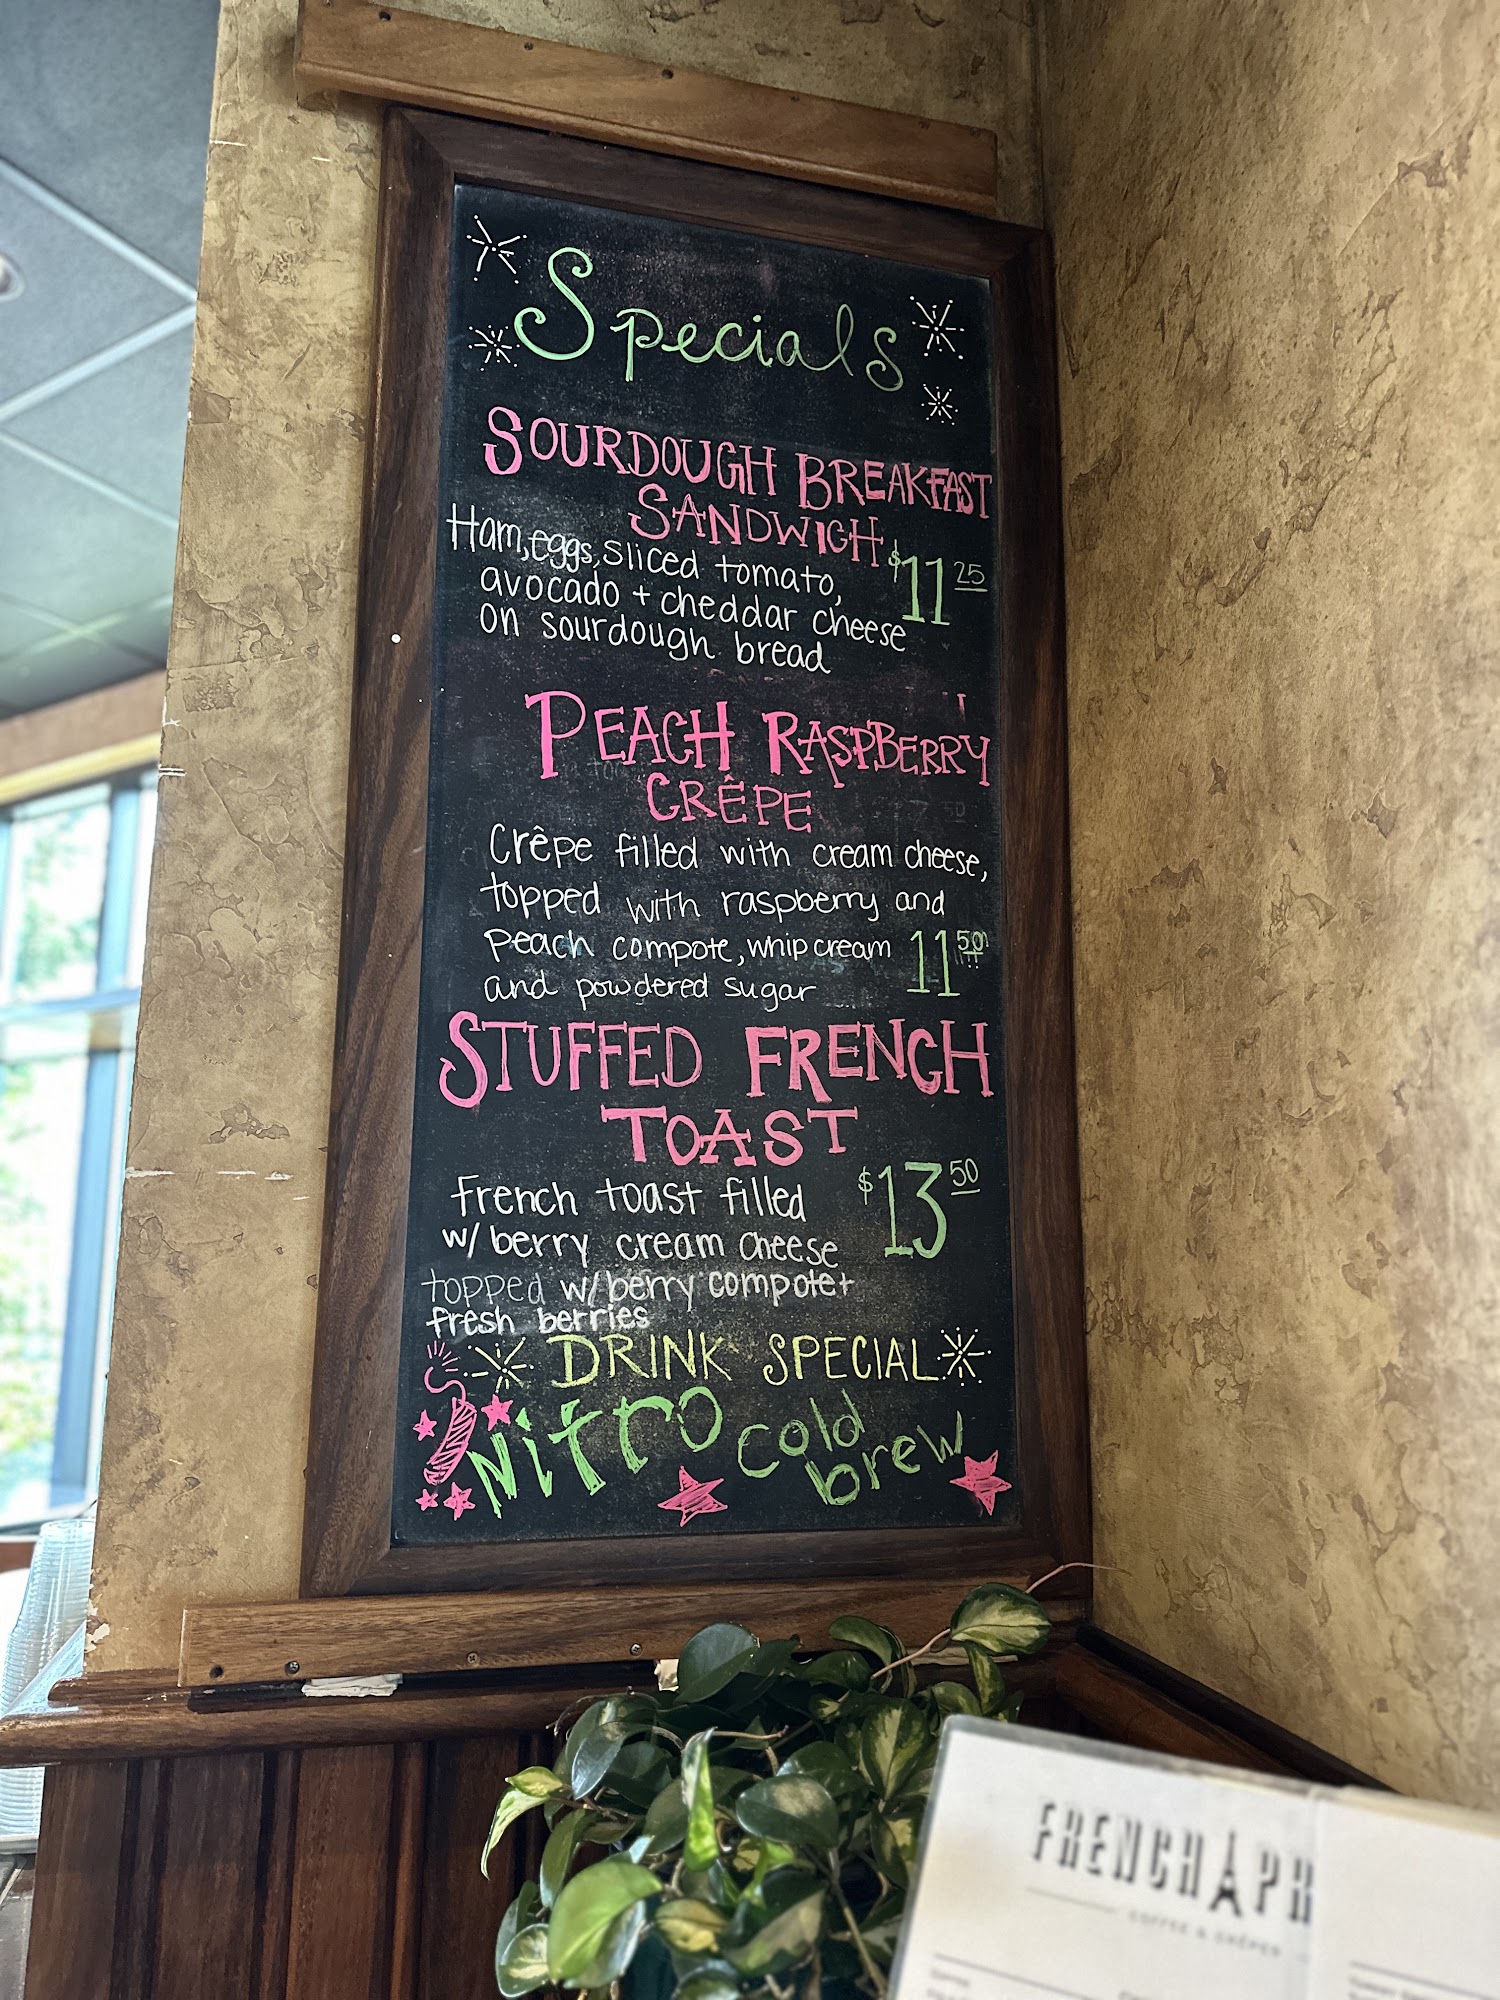 Specials
SOURDOUGH BREAKFAST
SANDWICH
Ham, eggs, sliced tomato,
avocado + cheddar cheese
on sourdough bread
$11 25
PEACH RASPBERRY
CRÊPE
Crêpe filled with cream cheese,
topped with raspberry and
peach compote, whip cream
and powdered sugar
11 50
STUFFED FRENCH
TOAST
French toast filled
w/ berry cream cheese
topped w/ berry compote +
fresh berries
$13 50
DRINK SPECIAL
Nitro cold
brew
FRENCH
COFFEE & CRÊPES